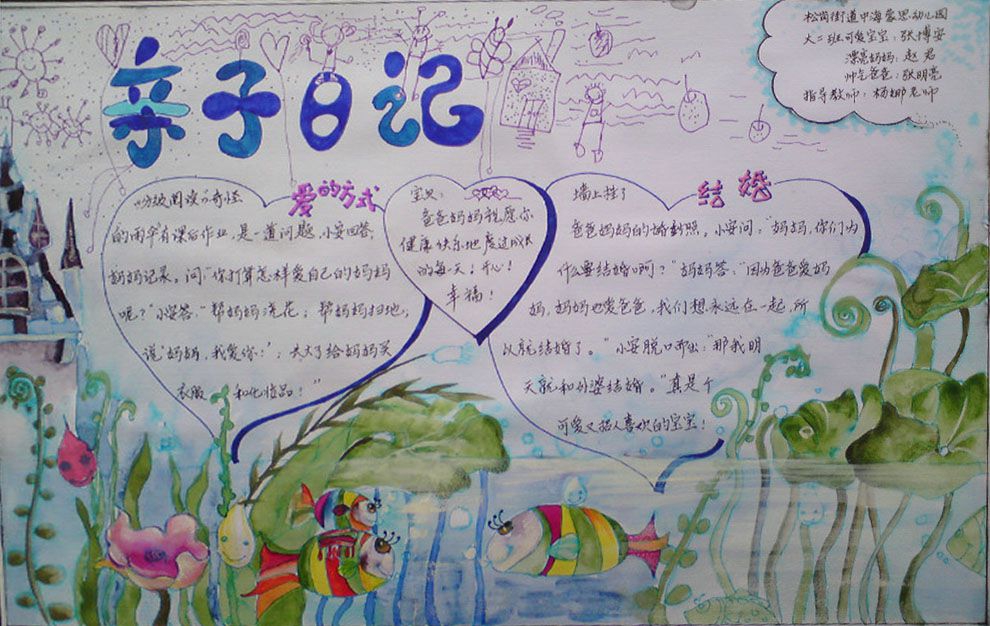 亲子日记
松岗街道中海蒙思幼儿园
大二班可爱宝宝：张博安
漂亮妈妈：赵君
帅气爸爸：张明亮
指导教师：杨娜老师
爱的方式
分级阅读《奇怪
的雨伞》有课后作业，是一道问题，小安回答，
妈妈记录。问“你打算怎样爱自己的妈妈
呢？”小安答：“帮妈妈浇花；帮妈妈扫地；
说‘妈妈，我爱你！’；长大了给妈妈买
衣服 和化妆品！”
宝贝：
爸爸妈妈祝愿你
健康快乐地度过成长
的每一天！开心！
幸福！
结婚
墙上挂了
爸爸妈妈的婚纱照。小安问：“妈妈，你们为
什么要结婚啊？”妈妈答：“因为爸爸爱妈
妈，妈妈也爱爸爸，我们想永远在一起，所
以就结婚了。”小安脱口而出：“那我明
天就和外婆结婚。”真是个
可爱又招人喜欢的宝宝！